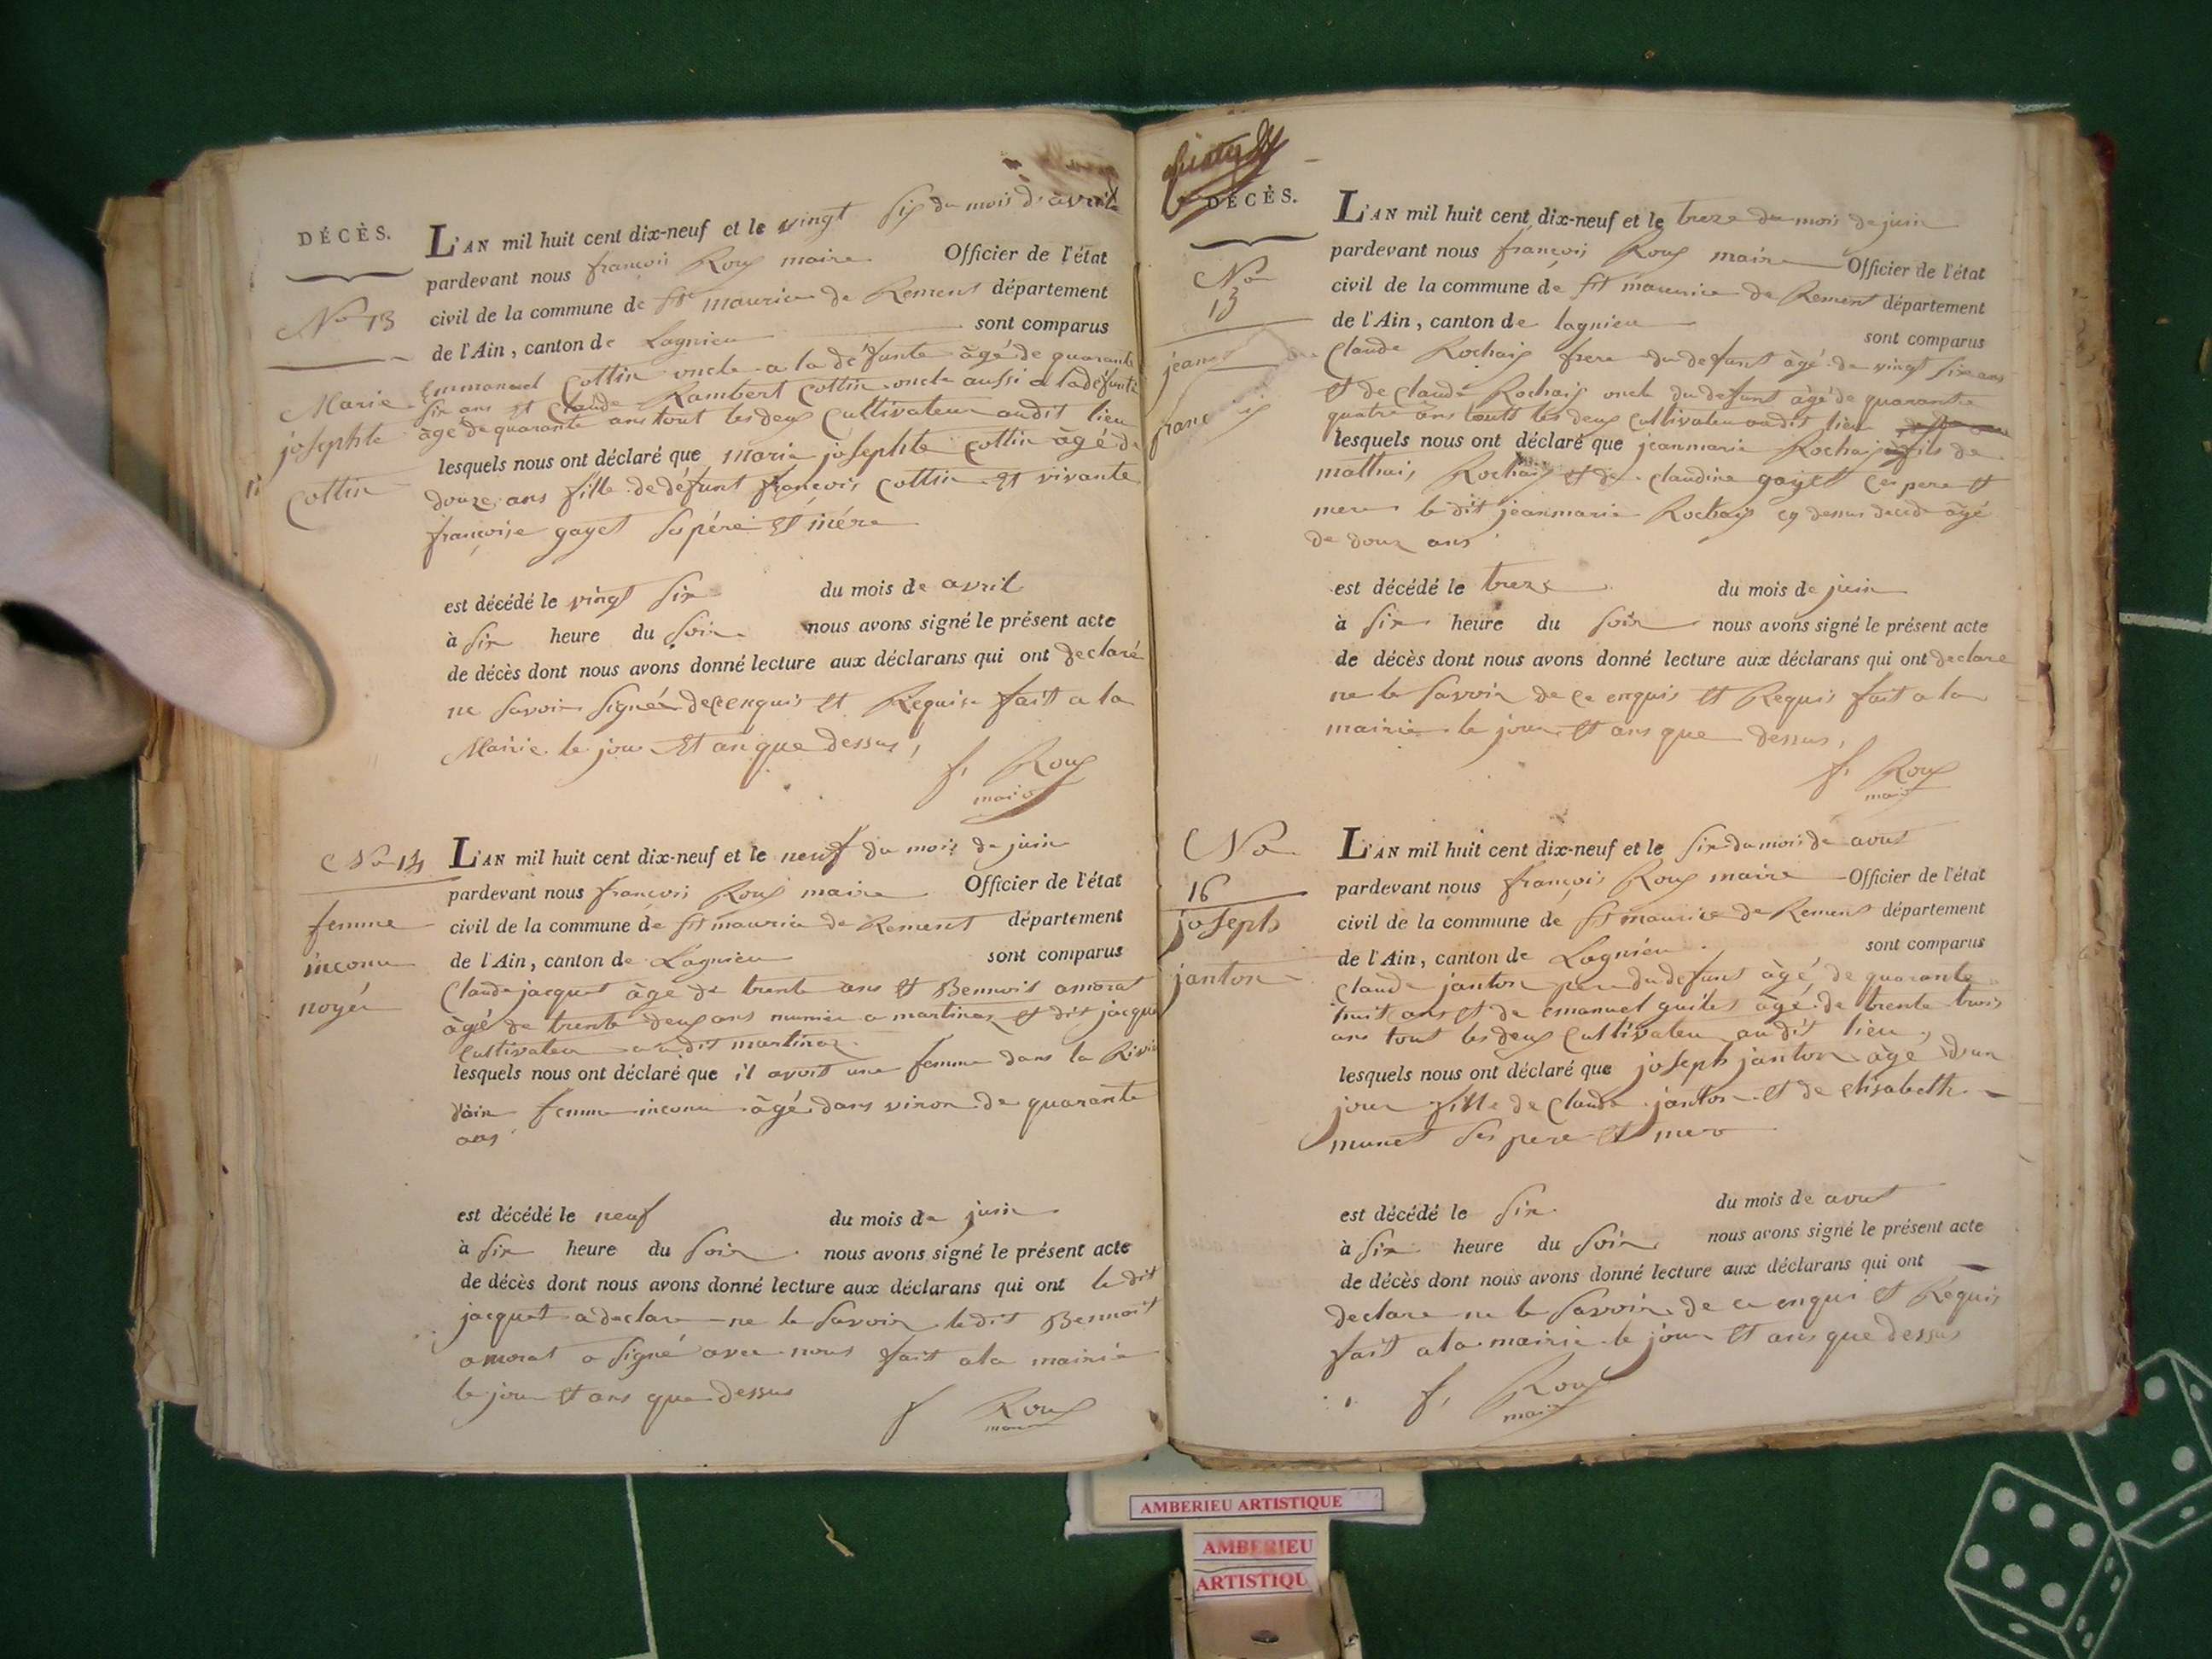 DÉCÈS.
L'AN mil huit cent dix-neuf et le vingt six du mois d'avril
pardevant nous françois Roux maire Officier de l'état
No 13
civil de la commune de st maurice de Remens département
de l'Ain, canton de Lagnieu sont comparus
Emmanuel Cottin oncle a la défunte âgé de quarante
six ans et Claude Rambert Cottin oncle aussi a la défunte
âgé de quarante ans tout les deux Cultivateur audit lieu
Marie
josephte
Cottin
lesquels nous ont déclaré que marie josephte Cottin âgé de
douze ans fille de défunt françois Cottin et vivante
françoise gayet père et mére
est décédé le vingt six du mois de avril
à six heure du soir nous avons signé le présent acte
de décès dont nous avons donné lecture aux déclarans qui ont declaré
ne savoir signér de ce enquis et Requise fait a la
Mairie le jour et an que dessus,
f, Roux
maire
No 14
L'AN mil huit cent dix-neuf et le neuf du mois de juin
pardevant nous françois Roux maire Officier de l'état
femme
inconu
noyér
civil de la commune de st maurice de Remens département
de l'Ain, canton de Lagnieu sont comparus
Claude jacquet âgé de trente ans et Bennoit amorat
âgé de trente deux ans a martinaz et dit jacque
Cultivateur audit martinaz
lesquels nous ont déclaré que il avoit une femme dans la
d'ain femme inconu âgé dans viron de quarante
ans
est décédé le neuf du mois de juin
à six heure du soir nous avons signé le présent acte
de décès dont nous avons donné lecture aux déclarans qui ont le dit
jacquet a declare ne le savoir le dit Bennoit
amorat a signé avec nous fait a la mairie
le jour et ans que dessus
f Roux
maire
DÉCÈS.
L'AN mil huit cent dix-neuf et le treze du mois de juin
pardevant nous françois Roux maire Officier de l'état
No
15
civil de la commune de st maurice de Remens département
de l'Ain, canton de lagnieu sont comparus
Claude Rochaix frere du defunt âgé de vingt six ans
et de Claude Rochaix oncle du defunt âgé de quarante
quatre ans touts les deux Cultivateur audit lieu
lesquels nous ont déclaré que jeanmarie Rochaix fils de
mathais Rochaix et de Claudine gayet Ces pere et
mere le dit jeanmarie Rochaix cy dessus decede âgé
de douz ans
est décédé le treze du mois de juin
à six heure du soir nous avons signé le présent acte
de décès dont nous avons donné lecture aux déclarans qui ont declare
ne le savoir de ce enquis et Requis fait a la
mairie le jour et ans que dessus,
f, Roux
maire
No
16
joseph
janton
L'AN mil huit cent dix-neuf et le six du mois de aout
pardevant nous françois Roux maire Officier de l'état
civil de la commune de st maurice de Remens département
de l'Ain, canton de Lagnieu sont comparus
Claude janton pere du defunt âgé de quarante
huit ans et de emanuel âgé de trente trois
ans tout les deux Cultivateur audit lieu,
lesquels nous ont déclaré que joseph janton âgé d'un
jour fille de Claude janton et de elisabeth
munet ses pere et mere
est décédé le six du mois de aout
à six heure du soir nous avons signé le présent acte
de décès dont nous avons donné lecture aux déclarans qui ont
declare ne le savoir de ce enqui et Requis
fait a la mairie le jour et ans que dessus
f, Roux
maire
AMBERIEU ARTISTIQUE
AMBERIEU
ARTISTIQU